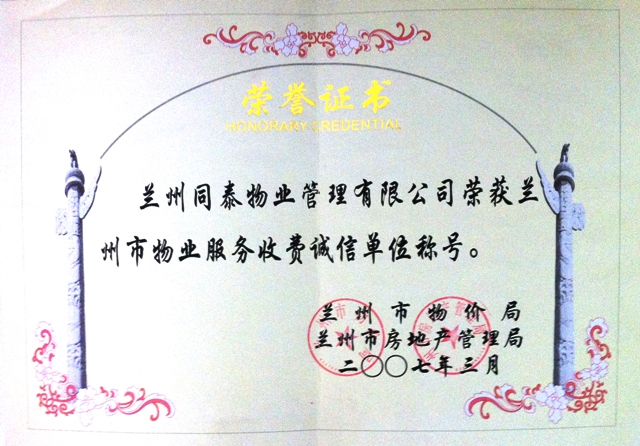 荣誉证书
HONORARY CREDENTIAL
兰州同泰物业管理有限公司荣获兰
州市物业服务收费诚信单位称号。
兰州市物价局
兰州市房地产管理局
二〇〇七年三月